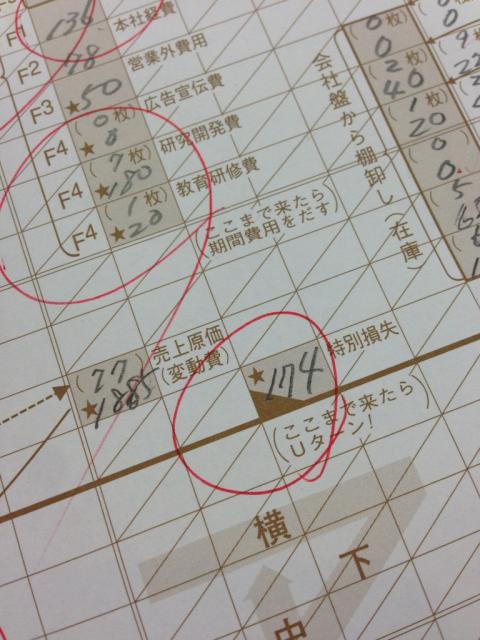 F1 136 本社経費
F2 78 営業外費用
F3 ★50 広告宣伝費
(0枚)
F4 ★0 研究開発費
(7枚)
F4 ★180 教育研修費
(1枚)
F4 ★20
(ここまで来たら
期間費用をだす)
会社盤から棚卸し(在庫)
(0枚)
0
(2枚)
40
(1枚)
20
(0
0
(5
(77) 売上原価
★1885 (変動費)
★174 特別損失
(ここまで来たら
Uターン!)
横
下
中